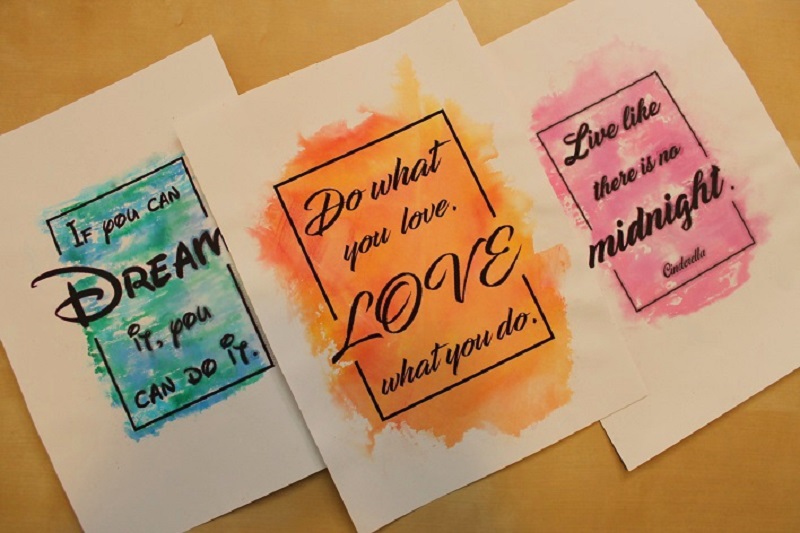 If you can
Dream
it, you
can do it.
Do what
you love.
LOVE
what you do.
Live like
there is no
midnight.
Cinderella